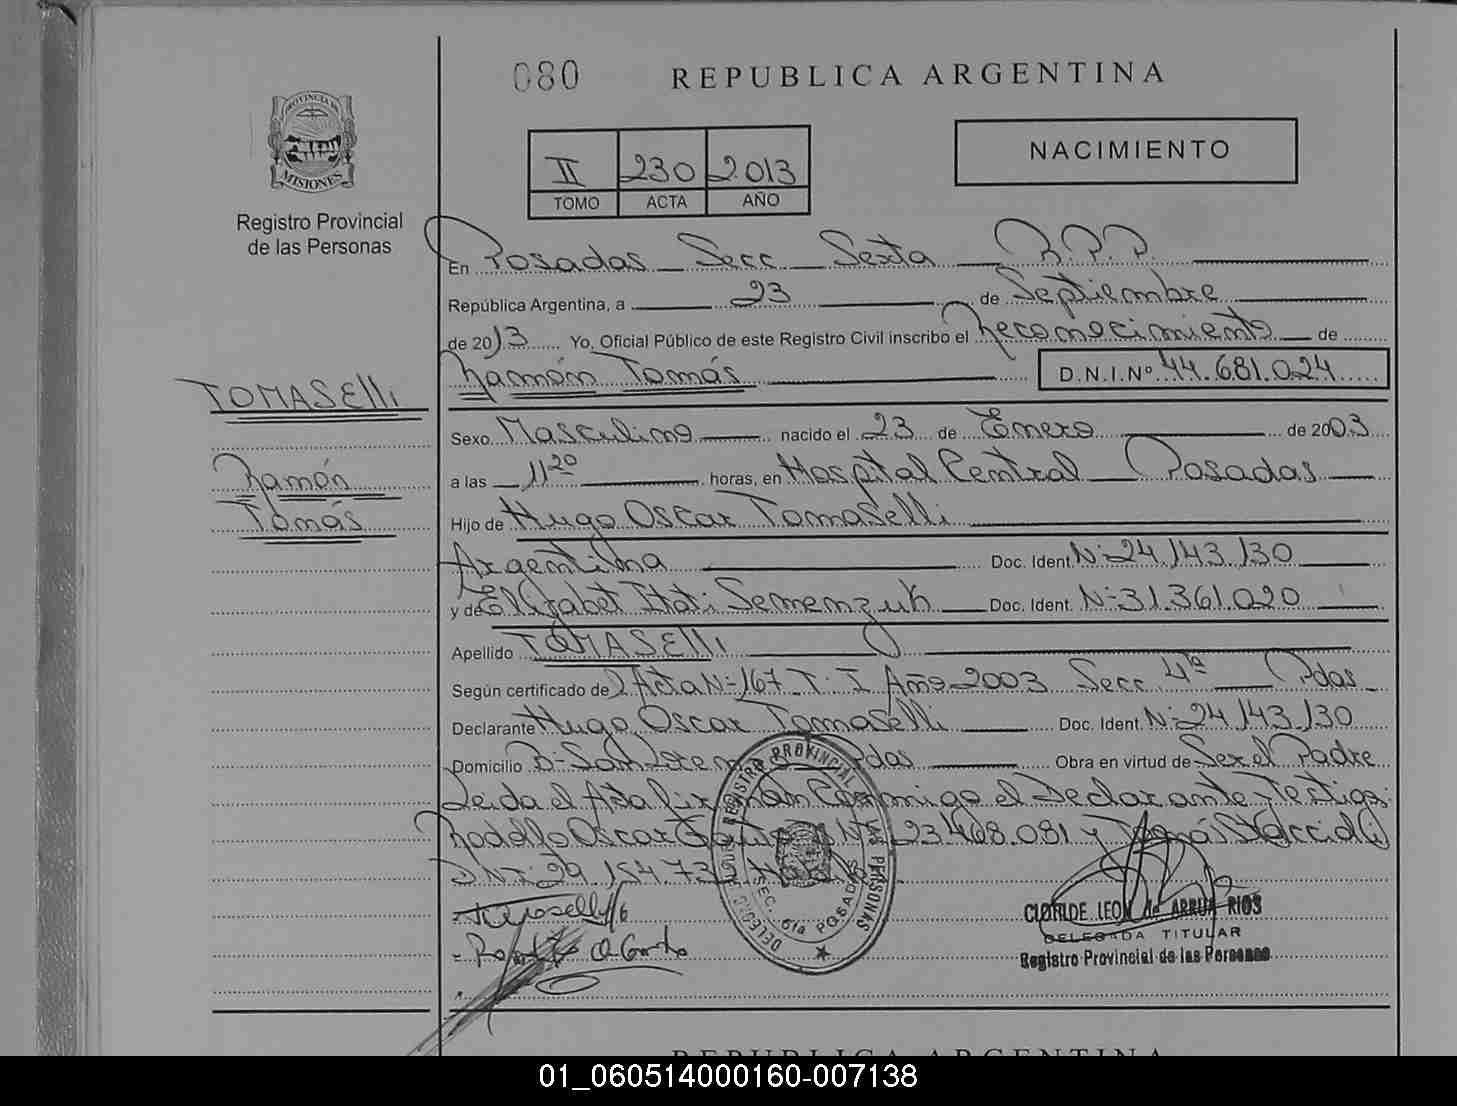 080 REPUBLICA ARGENTINA
PROVINCIA DE
MISIONES
Registro Provincial
de las Personas
II 230 2013
TOMO ACTA AÑO
NACIMIENTO
En Posadas Secc Sexta R.P.P.
República Argentina, a 23 de Septiembre
de 2013 Yo, Oficial Público de este Registro Civil inscribo el Reconocimiento de
Ramón Tomás D.N.I.Nº 44.681.024
TOMASElli
Ramón
Tomás
Sexo Masculino nacido el 23 de Enero de 2003
a las 11 20 horas, en Hospital Central Posadas
Hijo de Hugo Oscar Tomaselli
Argentina Doc. Ident. Nº 24.143.130
y de Elizabet Itati Semenzuk Doc. Ident. Nº 31.361.020
Apellido TOMASElli
Según certificado de Acta Nº 167 T. I Año 2003 Secc 4ta Pdas
Declarante Hugo Oscar Tomaselli Doc. Ident. Nº 24.143.130
Domicilio Bº San Lorenzo Pdas Obra en virtud de Ser el Padre
Leida el Acta firman Conmigo el Declarante y Testigos:
Rodolfo Oscar 23.468.081 y
DNI: 29.154.73
REGISTRO PROVINCIAL DE LAS PERSONAS
SEC. 6ta POSADAS
CLOTILDE LEON de ARRUA RIOS
DELEGADA TITULAR
Registro Provincial de las Personas
REPUBLICA ARGENTINA
01_060514000160-007138